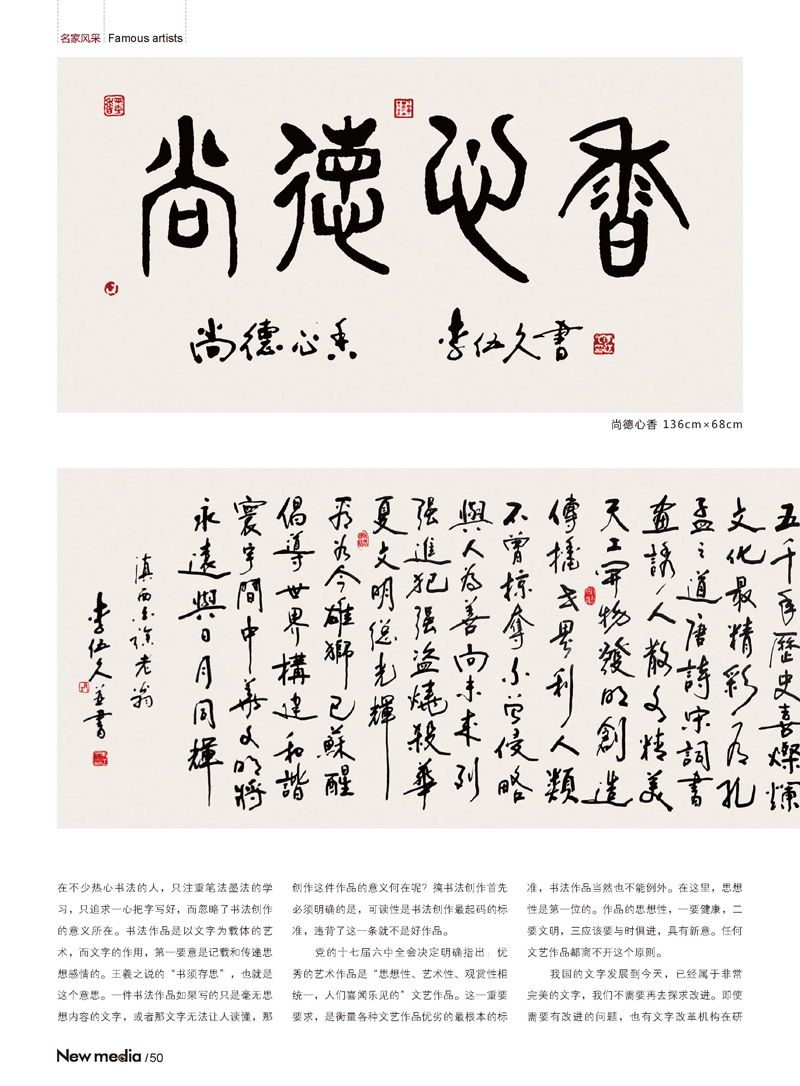 名家风采 Famous artists
尚德心香
尚德心香 李伍久书
尚德心香 136cm×68cm
五千年歷史喜燦爛
文化最精彩乃孔
孟之道唐詩宋詞書
畫詠人散文精美
天工開物發明創造
傳播世界利人類
不曾掠奪不曾侵略
與人為善向未來列
强進犯强盗燒殺華
夏文明總光輝
看我今雄獅已蘇醒
倡導世界構建和諧
寰宇間中華文明將
永遠與日月同輝
老翁
李伍久並書
在不少热心书法的人，只注重笔法墨法的学
习，只追求一心把字写好，而忽略了书法创作
的意义所在。书法作品是以文字为载体的艺
术，而文字的作用，第一要意是记载和传递思
想感情的。王羲之说的“书须存思”，也就是
这个意思。一件书法作品如果写的只是毫无思
想内容的文字，或者那文字无法让人读懂，那
创作这件作品的意义何在呢？搞书法创作首先
必须明确的是，可读性是书法创作最起码的标
准，违背了这一条就不是好作品。
党的十七届六中全会决定明确指出：优
秀的艺术作品是“思想性、艺术性、观赏性相
统一，人们喜闻乐见的”文艺作品。这一重要
要求，是衡量各种文艺作品优劣的最根本的标
准，书法作品当然也不能例外。在这里，思想
性是第一位的。作品的思想性，一要健康，二
要文明，三应该要与时俱进，具有新意。任何
文艺作品都离不开这个原则。
我国的文字发展到今天，已经属于非常
完美的文字，我们不需要再去探求改进。即使
需要有改进的问题，也有文字改革机构在研
New media /50